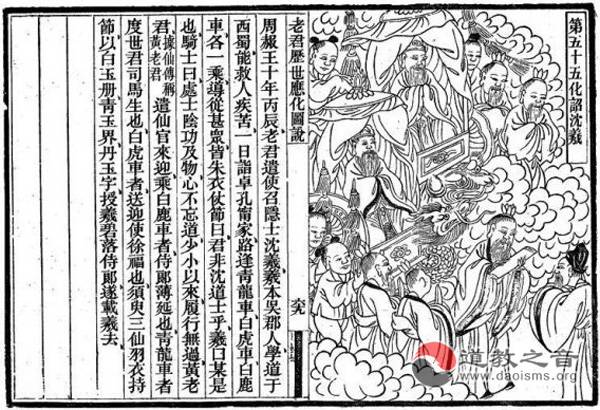 第五十五化詔沈羲
老君歷世應化圖說
周赧王十年丙辰老君遣使召隱士沈羲羲本吳郡人學道于
西蜀能救人疾苦一日詣卓孔甯家路逢青龍車白虎車白鹿
車各一乘導從甚眾皆朱衣仗節曰君非沈道士乎羲曰某是
也騎士曰處士陰功及物心不忘道少小以來履行無過黃老
君據仙傳稱黃老君遣仙官來迎乘白鹿車者侍郎薄延也青龍車者
度世君司馬生也白虎車者送迎使徐福也須臾三仙羽衣持
節以白玉册青玉界丹玉字授羲碧落侍郎遂載羲去
道教之音
www.daoisms.org